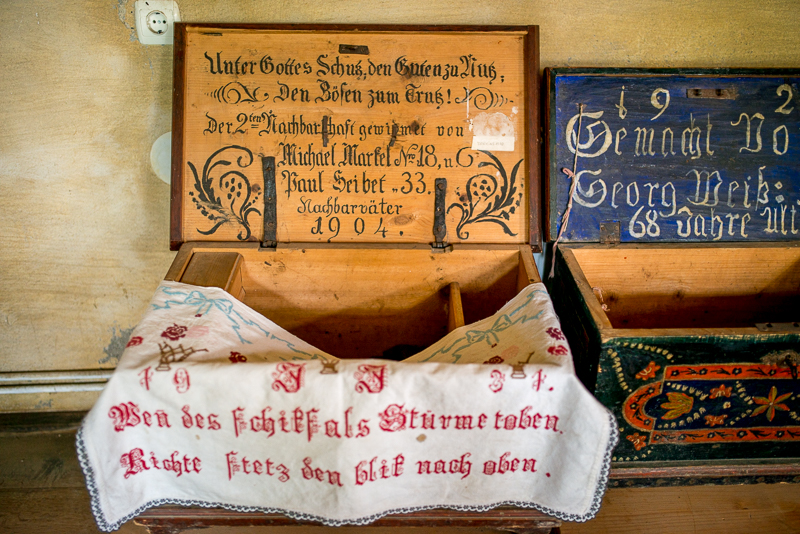 Unter Gottes Schutz, den Guten zu Nutz,
Den Bösen zum Trutz!
Der 2ten Nachbarschaft gewidmet von
Michael Markel No 18, u.
Paul Seibet „ 33.
Nachbarväter
1904.
1 9 2
Gemacht Vo
Georg Weiß:
68 Jahre Alt
1 9 J J 3 4.
Wen des schiksals Stürme toben.
Richte stetz den blik nach oben.